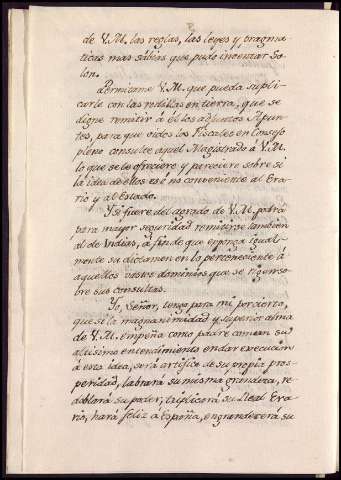 de V.M. las reglas, las leyes y pragma-
ticas mas sábias que pudo inventar So-
lon.
Permitame V.M. que pueda supli-
carle con las rodillas en tierra, que se
digne remitir á él los adjuntos Apun-
tes, para que oídos los Fiscales en Consejo
pleno consulte aquel Magistrado á V.M.
lo que se le ofreciere y pareciere sobre si
la idea de ellos es ó no conveniente al Era-
rio y al Estado.
Y si fuere del agrado de V.M. podrá
para mayor seguridad remitirse tambien
al de Indias, á fin de que exponga igual-
mente su dictamen en lo perteneciente á
aquellos vastos dominios que se rigen so-
bre sus consultas.
Yo, Señor, tengo para mi por cierto,
que si la magnanimidad y superior alma
de V.M. empeña como padre comun su
altisimo entendimiento en dar execucion
á esta idea, será artifice de su propia pros-
peridad, labrará su misma grandeza, re-
doblará su poder, triplicará su Real Era-
rio, hará feliz a España, engrandecerá su